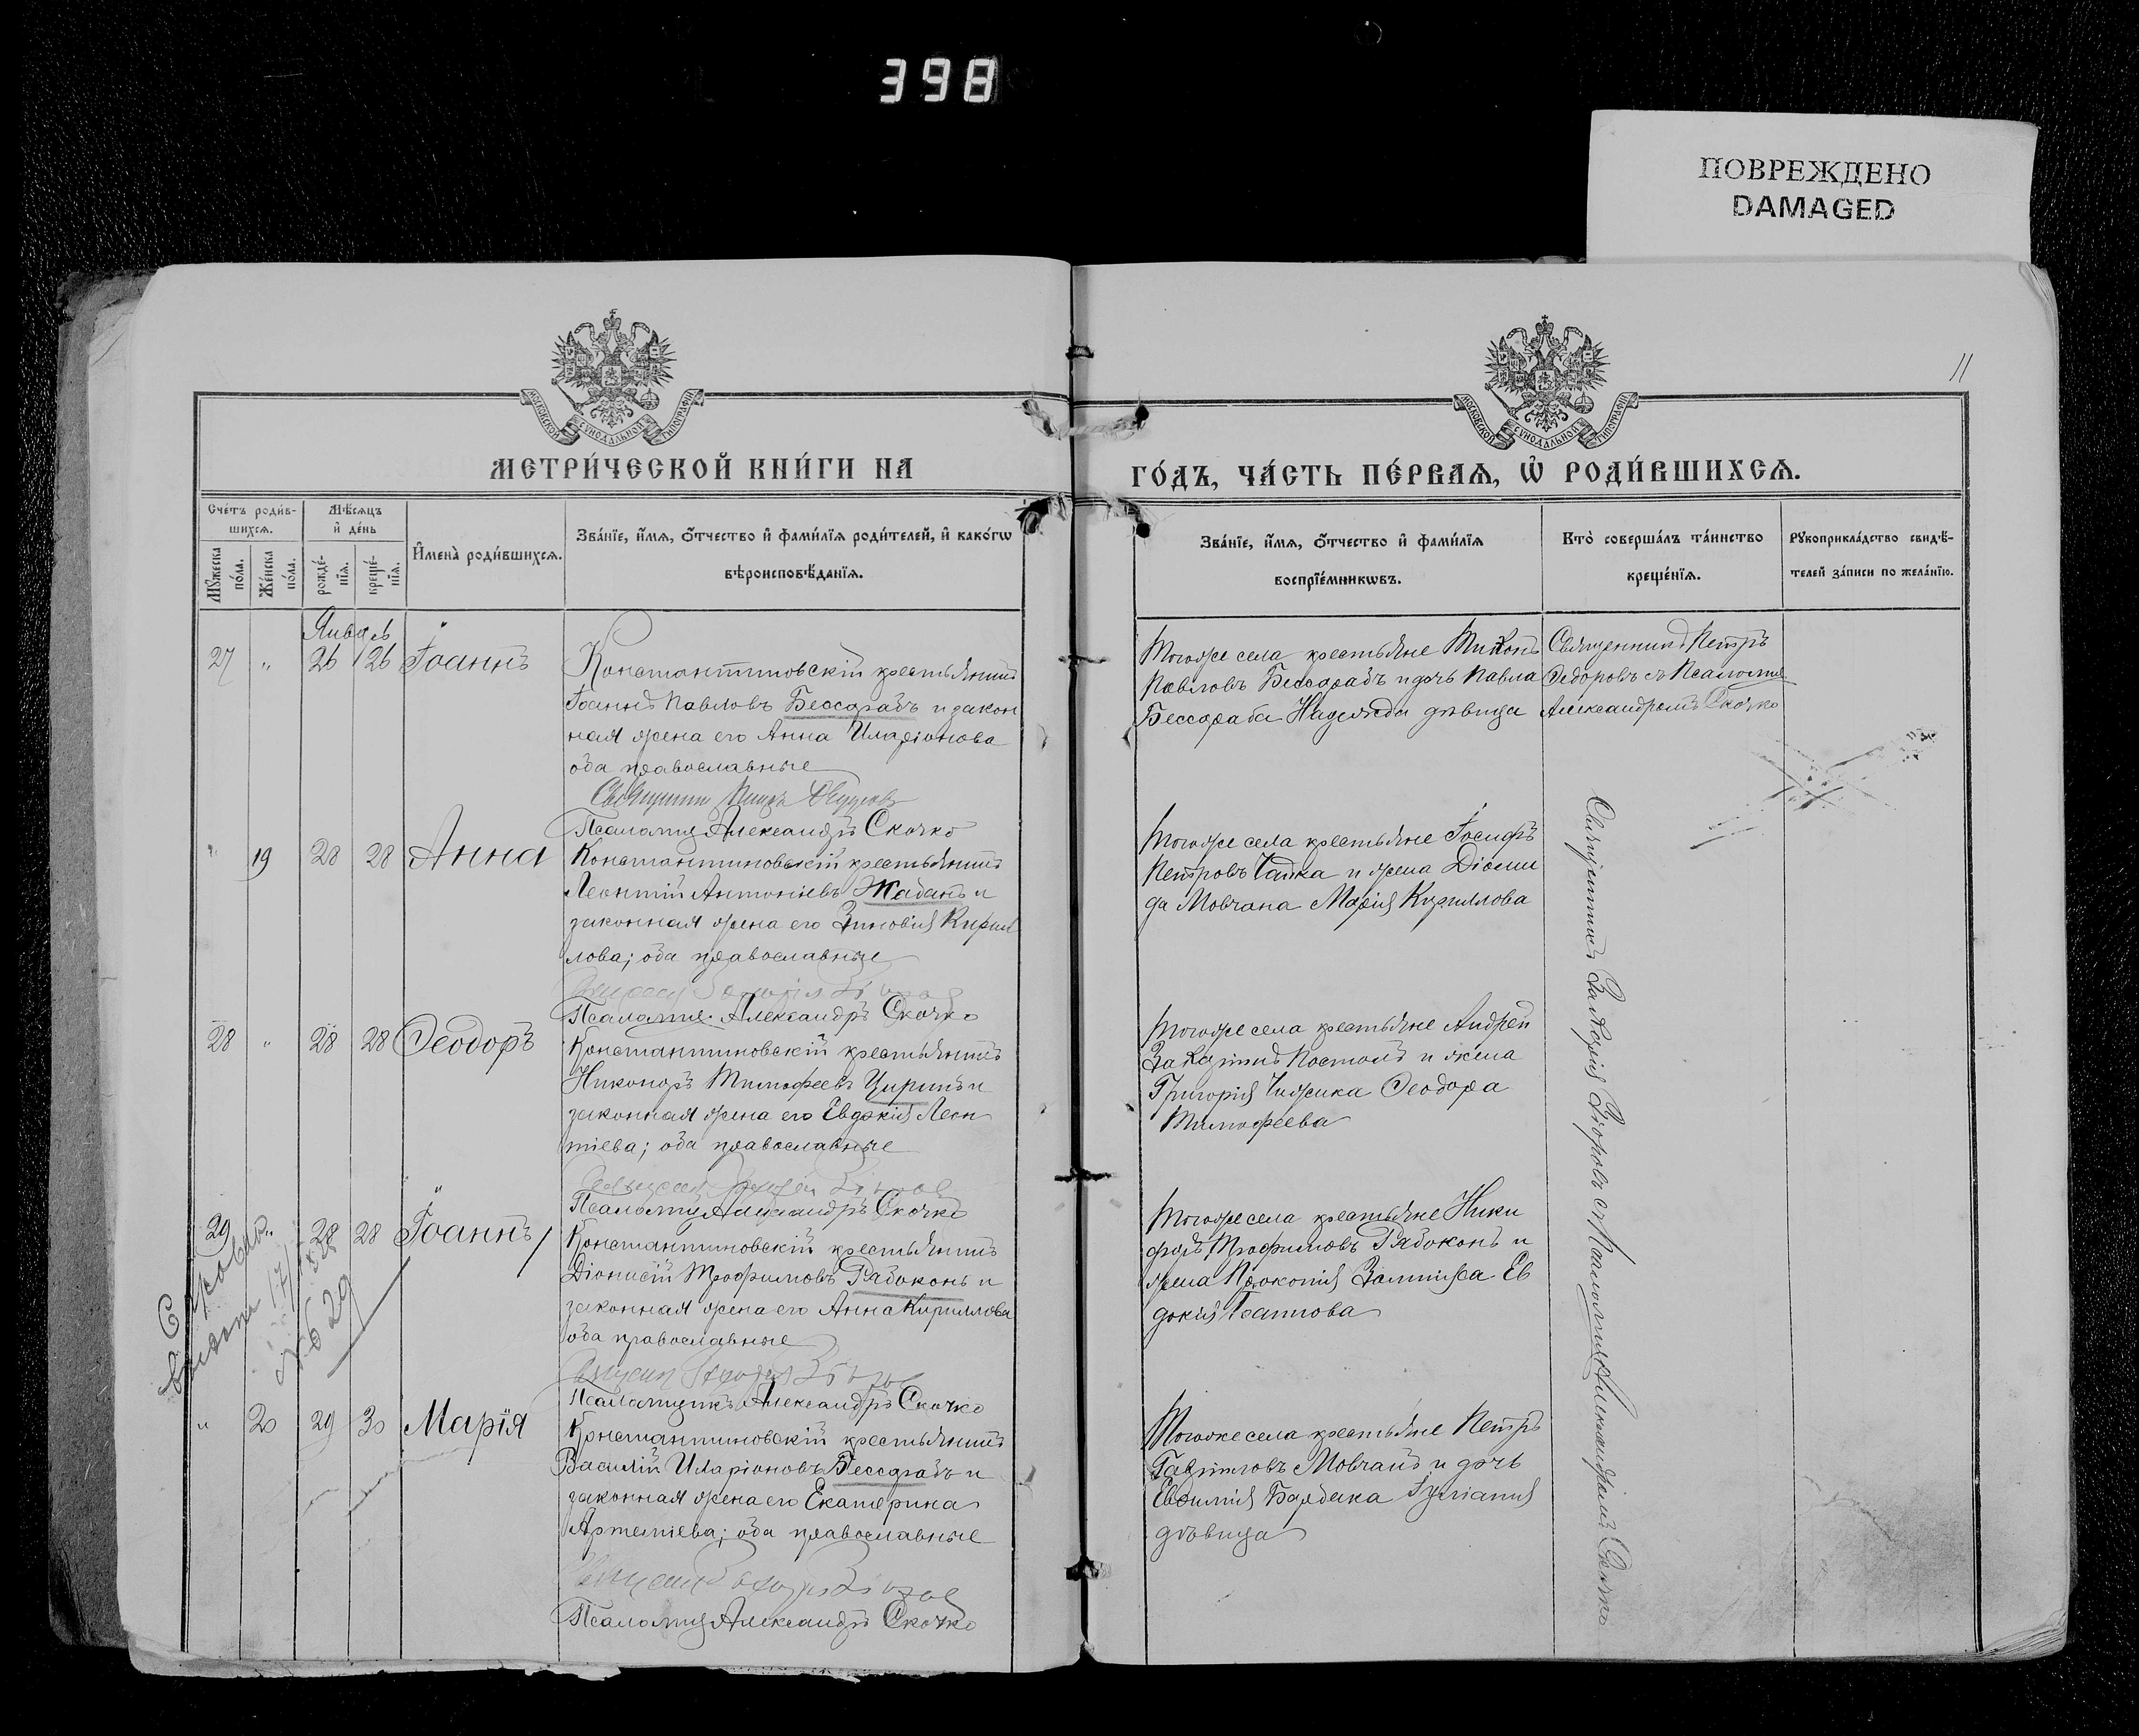 398
ПОВРЕЖДЕНО
DAMAGED
11
МОСКОВСКОЙ СУНОДАЛЬНОЙ ТИПОГРАФІИ
МОСКОВСКОЙ СУНОДАЛЬНОЙ ТИПОГРАФІИ
МЕТРИ́ЧЕСКОЙ КНИ́ГИ НА
ГО́ДЪ, ЧА́СТЬ ПЕ́РВАѦ, Ѡ҆ РОДИ́ВШИХСѦ.
Сче́тъ роди́в-
шихсѧ.
Мѣ́сѧцъ
и҆ де́нь
Мꙋ́жеска
по́ла.
Же́нска
по́ла.
рожде́-
нїѧ.
креще́-
нїѧ.
И҆мена̀ роди́вшихсѧ.
Зва́нїе, и҆́мѧ, ѻ҆́тчество и҆ фами́лїѧ роди́телей, и҆ како́гѡ
вѣроисповѣ́данїѧ.
Зва́нїе, и҆́мѧ, ѻ҆́тчество и҆ фами́лїѧ
воспрїе́мникѡвъ.
Кто̀ соверша́лъ та́инство
креще́нїѧ.
Рꙋкоприкла́дство свидѣ́-
телей за́писи по жела́нїю.
Январь
27 " 26 26 Іоаннъ
Константиновскій крестьянинъ
Іоаннъ Павловъ Бессарабъ и закон
ная жена его Анна Иларіонова
оба православные
Псаломщ Александръ Скочко
Тогоже села крестьяне Тихонъ
Павловъ Бессарабъ и дочь Павла
Бессараба Надежда дѣвица
Священникъ Петръ
Федоровъ съ Псаломщ
Александромъ Скочко
" 19 28 28 Анна
Константиновскій крестьянинъ
Леонтій Антоніевъ Жабанъ и
законная жена его Зиновія Кирил
лова; оба православные
Псаломщ. Александръ Скочко
Тогоже села крестьяне Іосифъ
Петровъ Чайка и жена Діоми
да Мовчана Марія Кириллова
28 " 28 28 Ѳеодоръ
Константиновскій крестьянинъ
Никоноръ Тимофеевъ Циринъ и
законная жена его Евдокія Леон
тіева; оба православные
Псаломщ Александръ Скочко
Тогоже села крестьяне Андрей
Постолъ и жена
Григорія Чижика Ѳеодора
Тимофеева
29 " 28 28 Іоаннъ
Константиновскій крестьянинъ
Діонисій Трофимовъ Рябоконь и
законная жена его Анна Кириллова
оба православные
Псаломщикъ Александръ Скочко
Тогоже села крестьяне Ники
форъ Трофимовъ Рябоконь и
жена Прокопія Ев
докія Іоаннова
№ 629
" 20 29 30 Марія
Константиновскій крестьянинъ
Василій Иларіоновъ Бессарабъ и
законная жена его Екатерина
Артеміева; оба православные
Псаломщ Александръ Скочко
Тогоже села крестьяне Петръ
Гавриловъ Мовчанъ и дочь
Евфимія Іуліанія
дѣвица
Священникъ Захарія съ Псаломщикомъ Александромъ Скочко